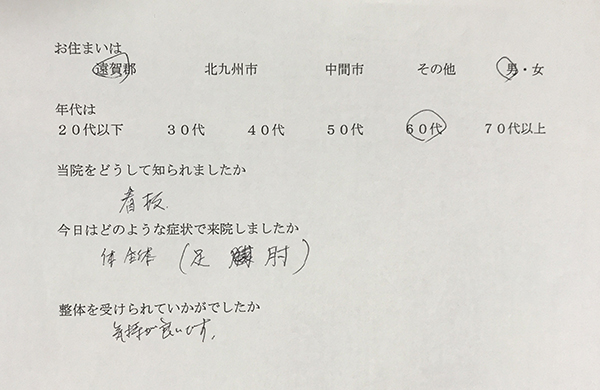 お住まいは
遠賀郡 北九州市 中間市 その他 男・女
年代は
20代以下 30代 40代 50代 60代 70代以上
当院をどうして知られましたか
看板
今日はどのような症状で来院しましたか
体全体(足 肘)
整体を受けられていかがでしたか
気持が良いです。